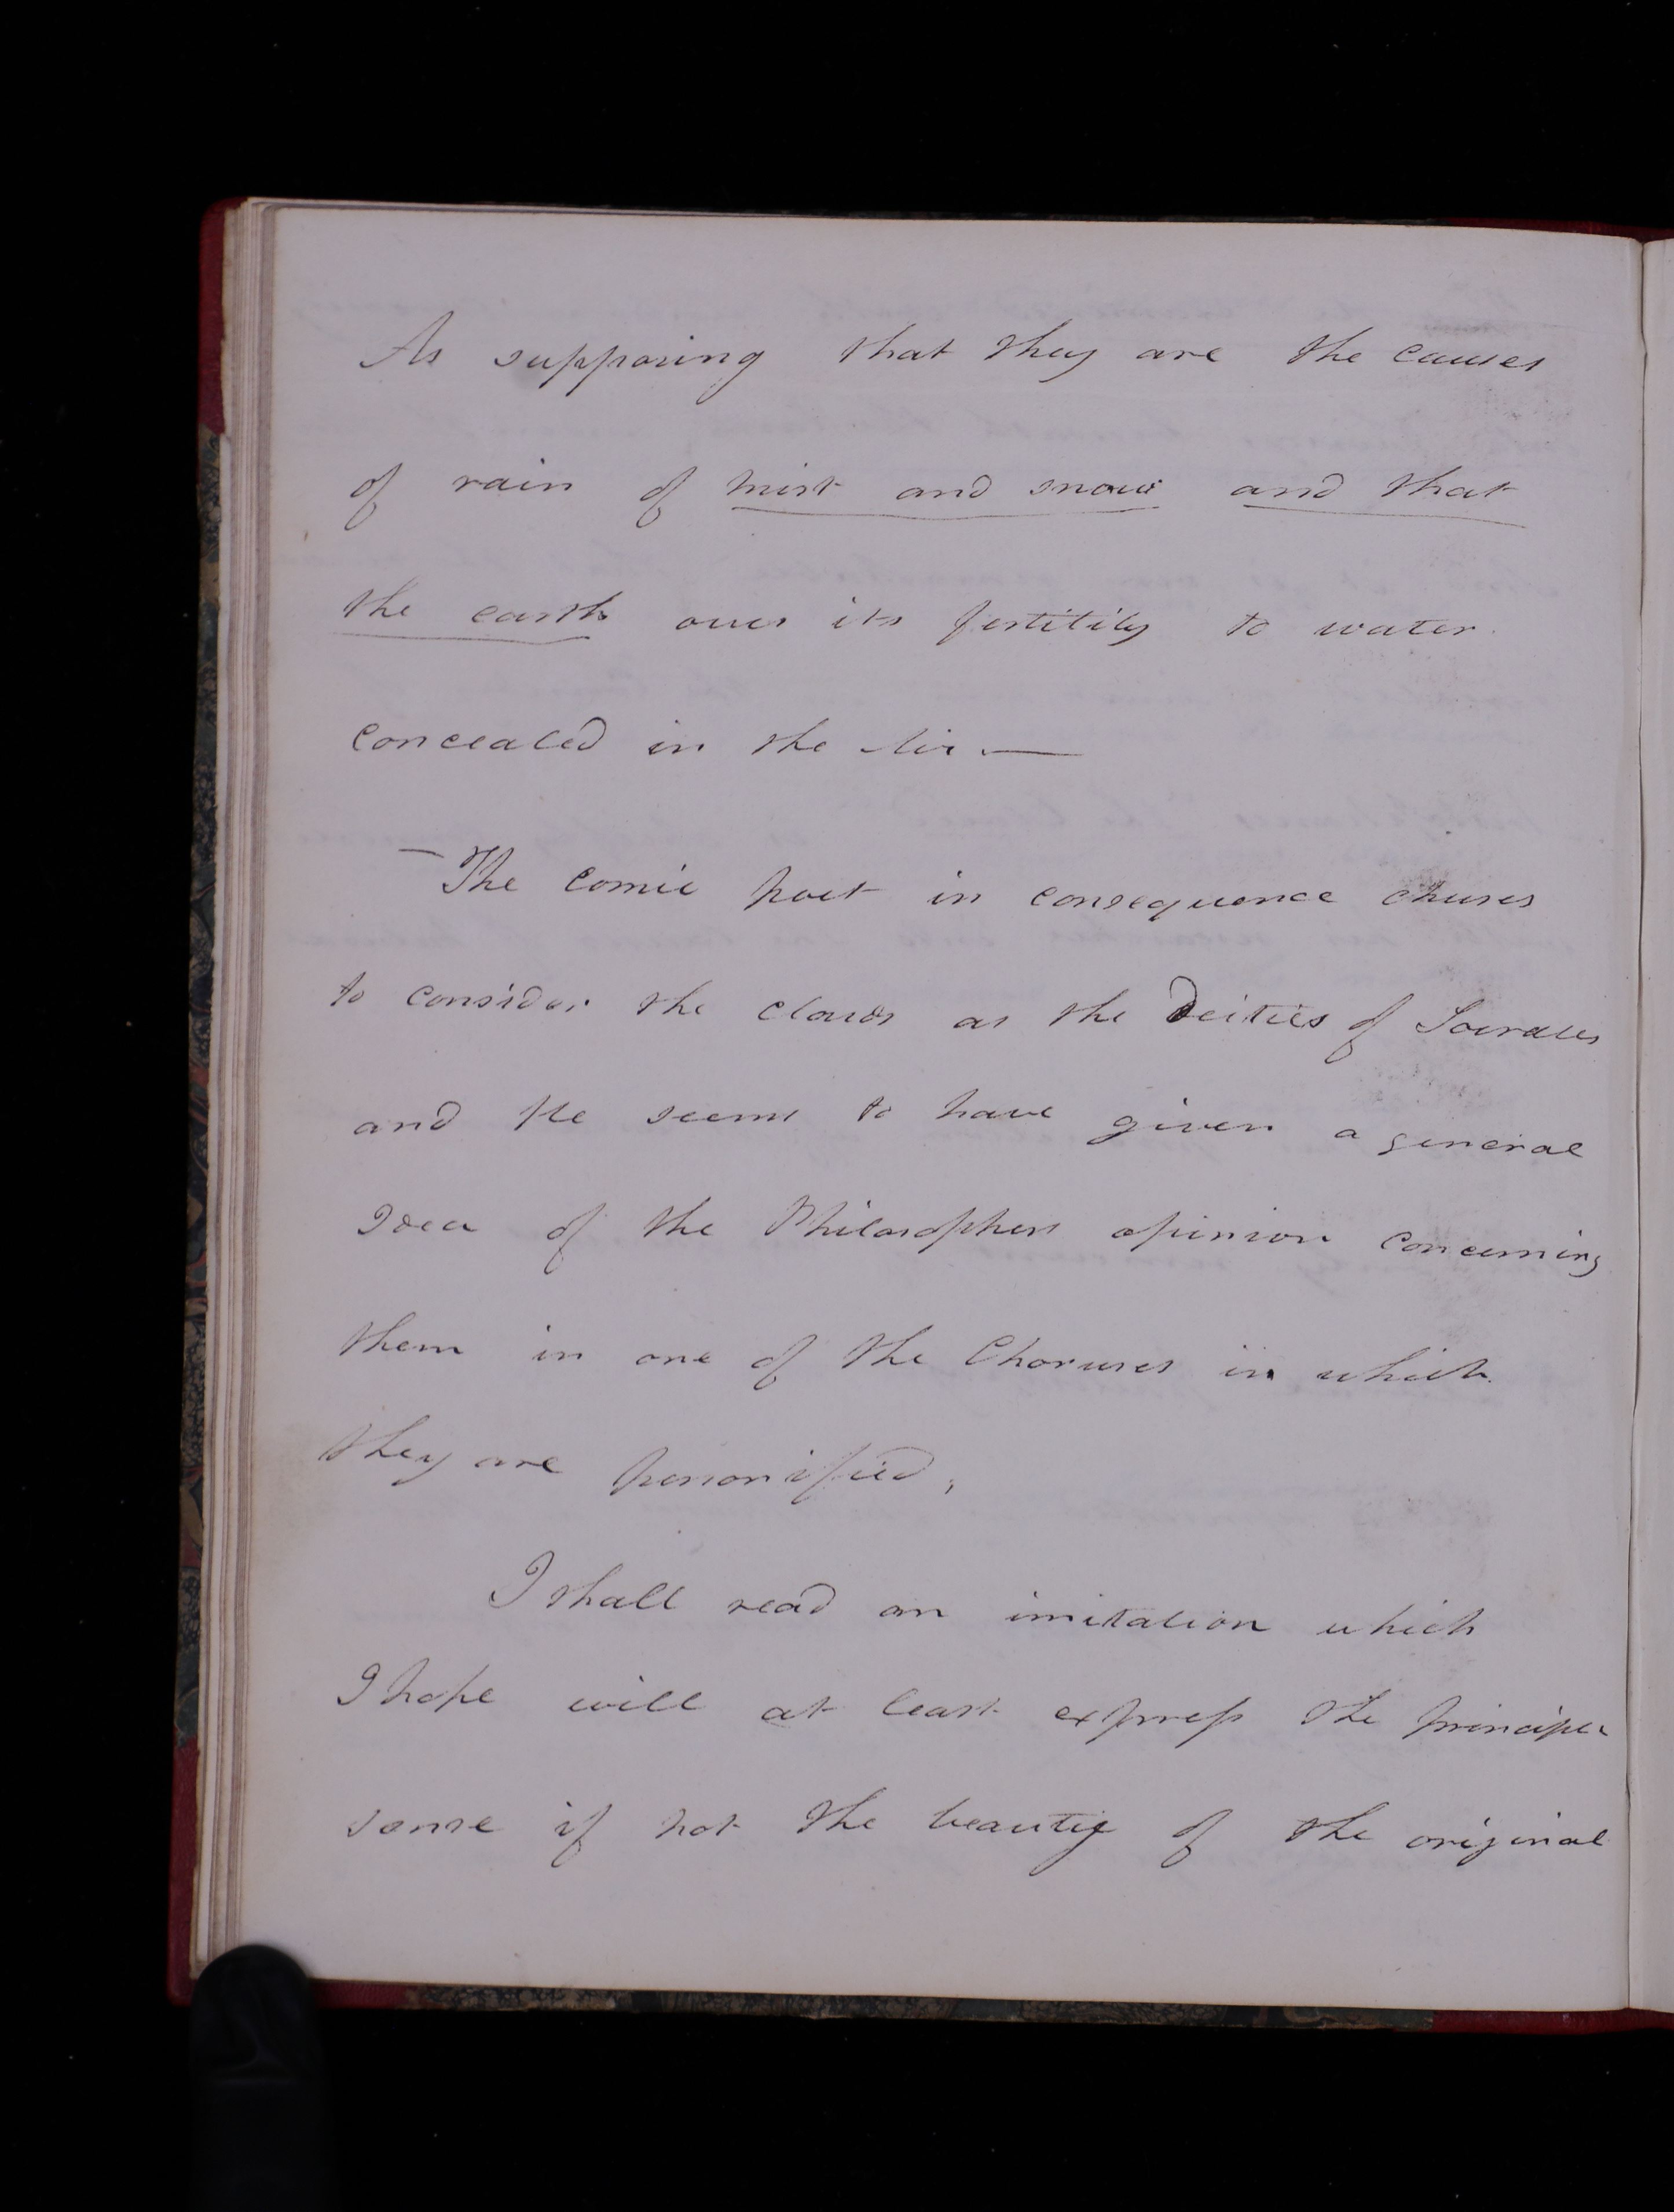 As supposing that they are the causes
of rain of mist and snow and that
the earth owes its fertility to water
concealed in the Air —
— The Comic poet in consequence chuses
to consider the clouds as the Deities of Socrates
and He seems to have given a general
Idea of the Philosophers opinion concerning
them in one of the Choruses in which
they are personified,
I shall read an imitation which
I hope will at least express the
sense if not the of the original